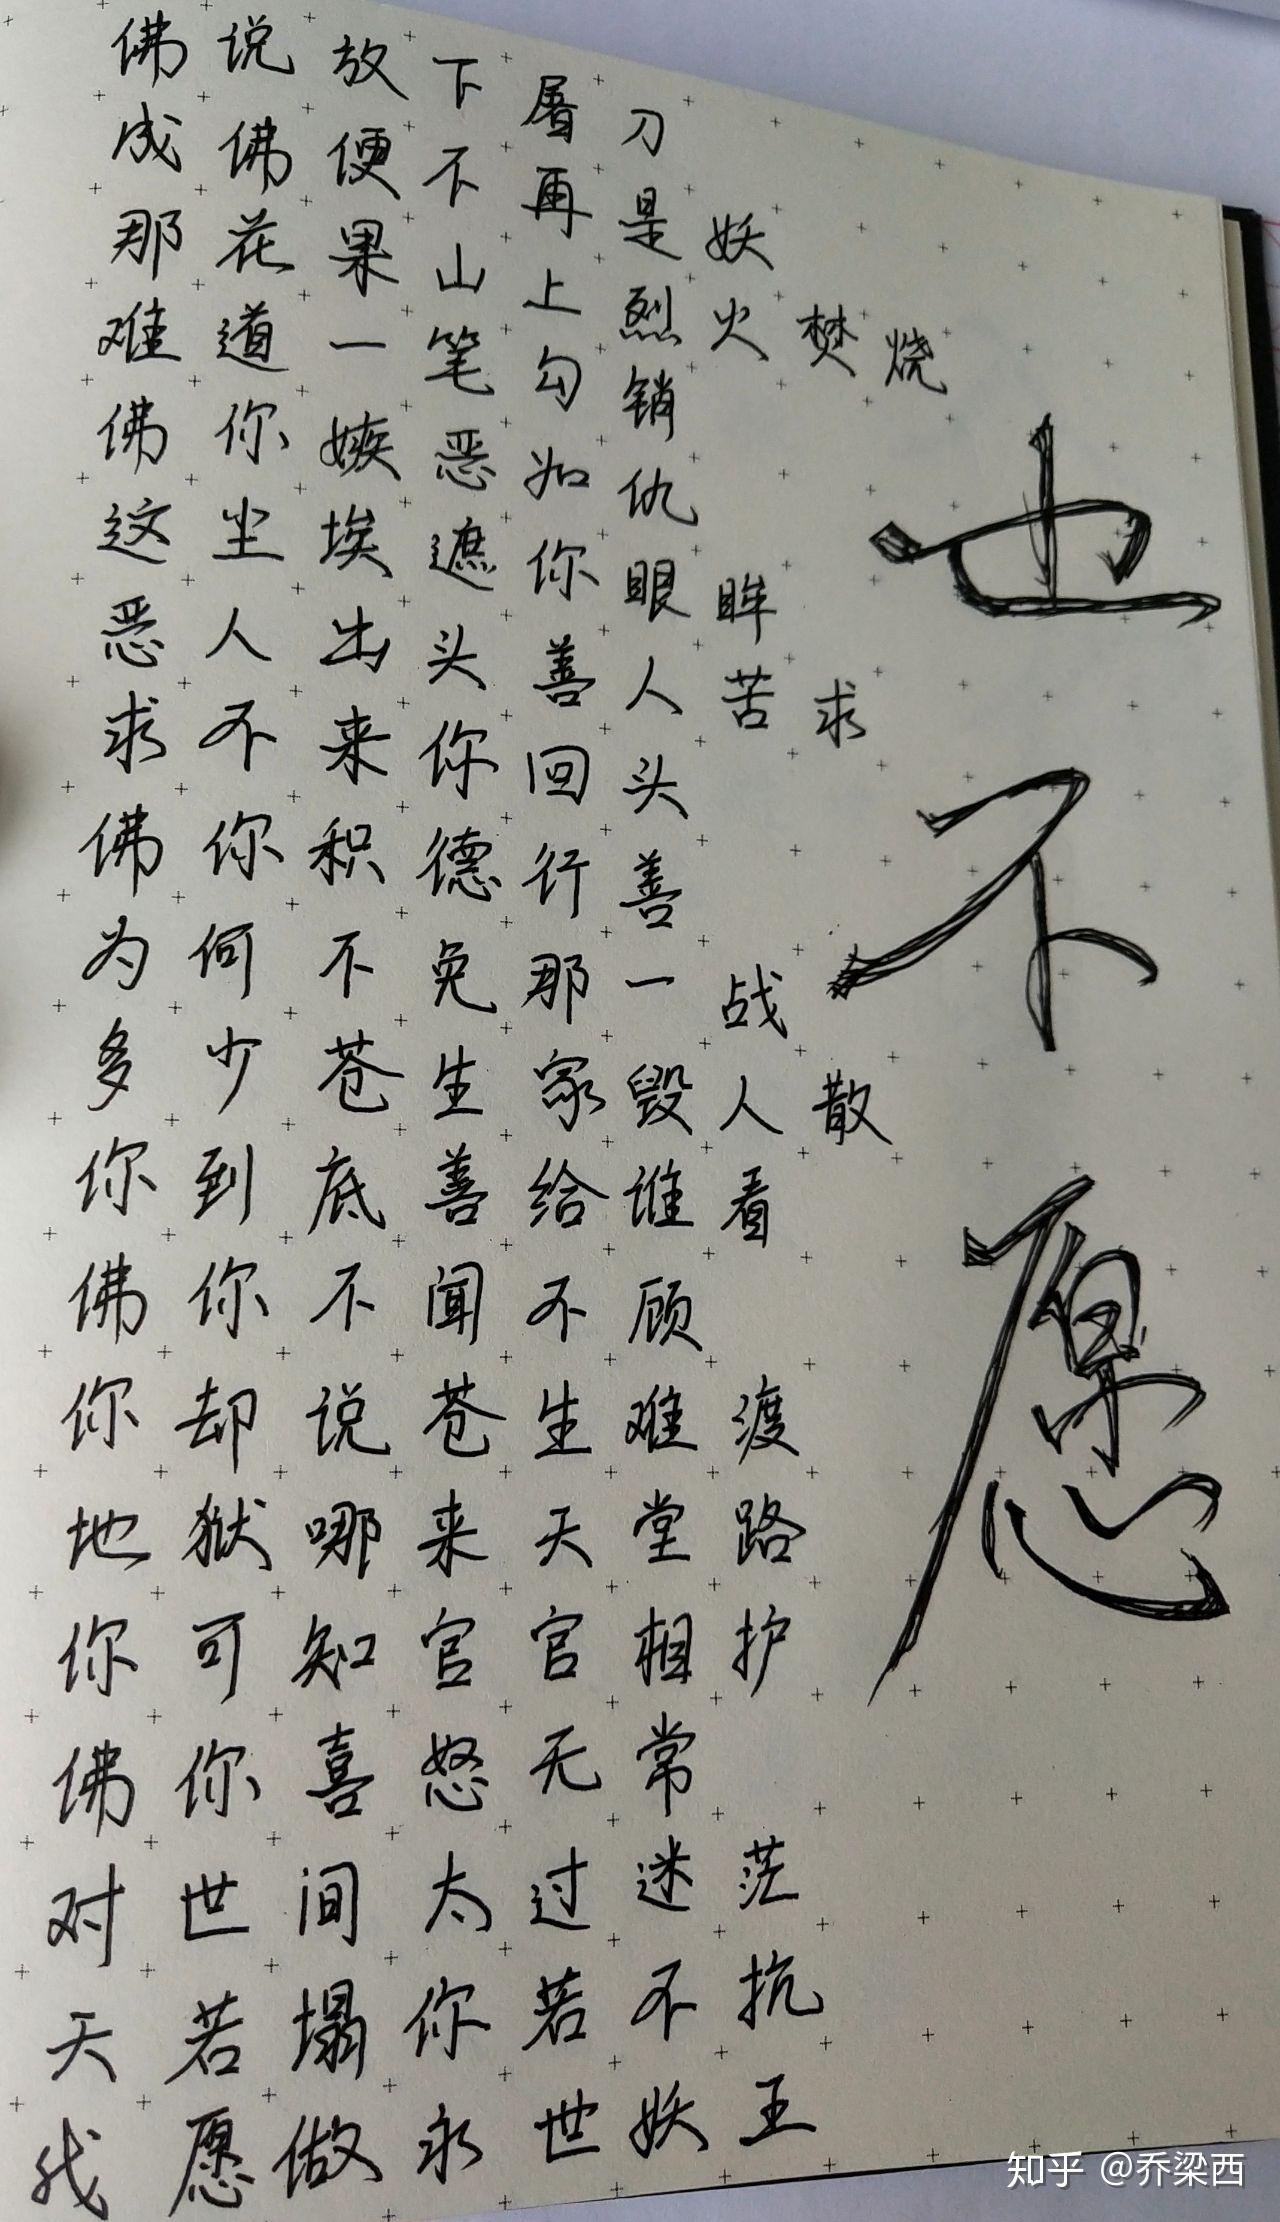 佛说放下屠刀
成佛便不再是妖
那花果山上烈火焚烧
难道一笔勾销
佛你嫉恶如仇
这尘埃遮你眼眸
恶人出头善人苦求
求不来你回头
佛你积德行善
为何不免那一战
多少苍生家毁人散
你到底善给谁看
佛你不闻不顾
你却说苍生难渡
地狱哪来天堂路
你可知官官相护
佛你喜怒无常
对世间太过迷茫
天若塌你若不抗
我愿做永世妖王
也不愿
知乎 @乔梁西